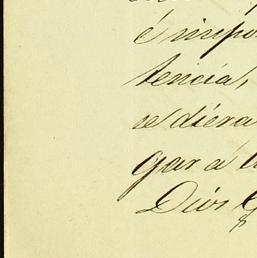 é impo
tencia,
se diera
gar a l
Dios G